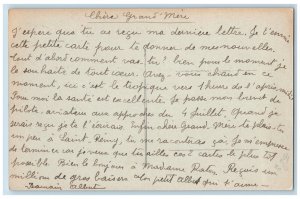 Chère Grand' Mère
J'espère que tu as reçu ma dernière lettre. Je t'envoi
cette petite carte pour te donner de mes nouvelles.
Tout d'abord comment vas-tu? bien pour le moment je
le souhaite de tout cœur. Avez-vous chaud en ce
moment, ici c'est le tropique vers 4 heures de l'après-midi.
Pour moi la santé est excellente. Je passe mon brevet de
pilote aviateur aux approches du 4 Juillet. Quand je
serai reçu je te l'écrirais. chère Grand' Mère te plais-tu
un peu à Saint Rémy, tu me racontras ça. Je m'empresse
de terminer car je veux que tu ailles cart le plus tôt
possible. Bien le bonjour à Madame Raton. Reçois un
million de gros baisers ton petit Albert qui t'aime
Albert